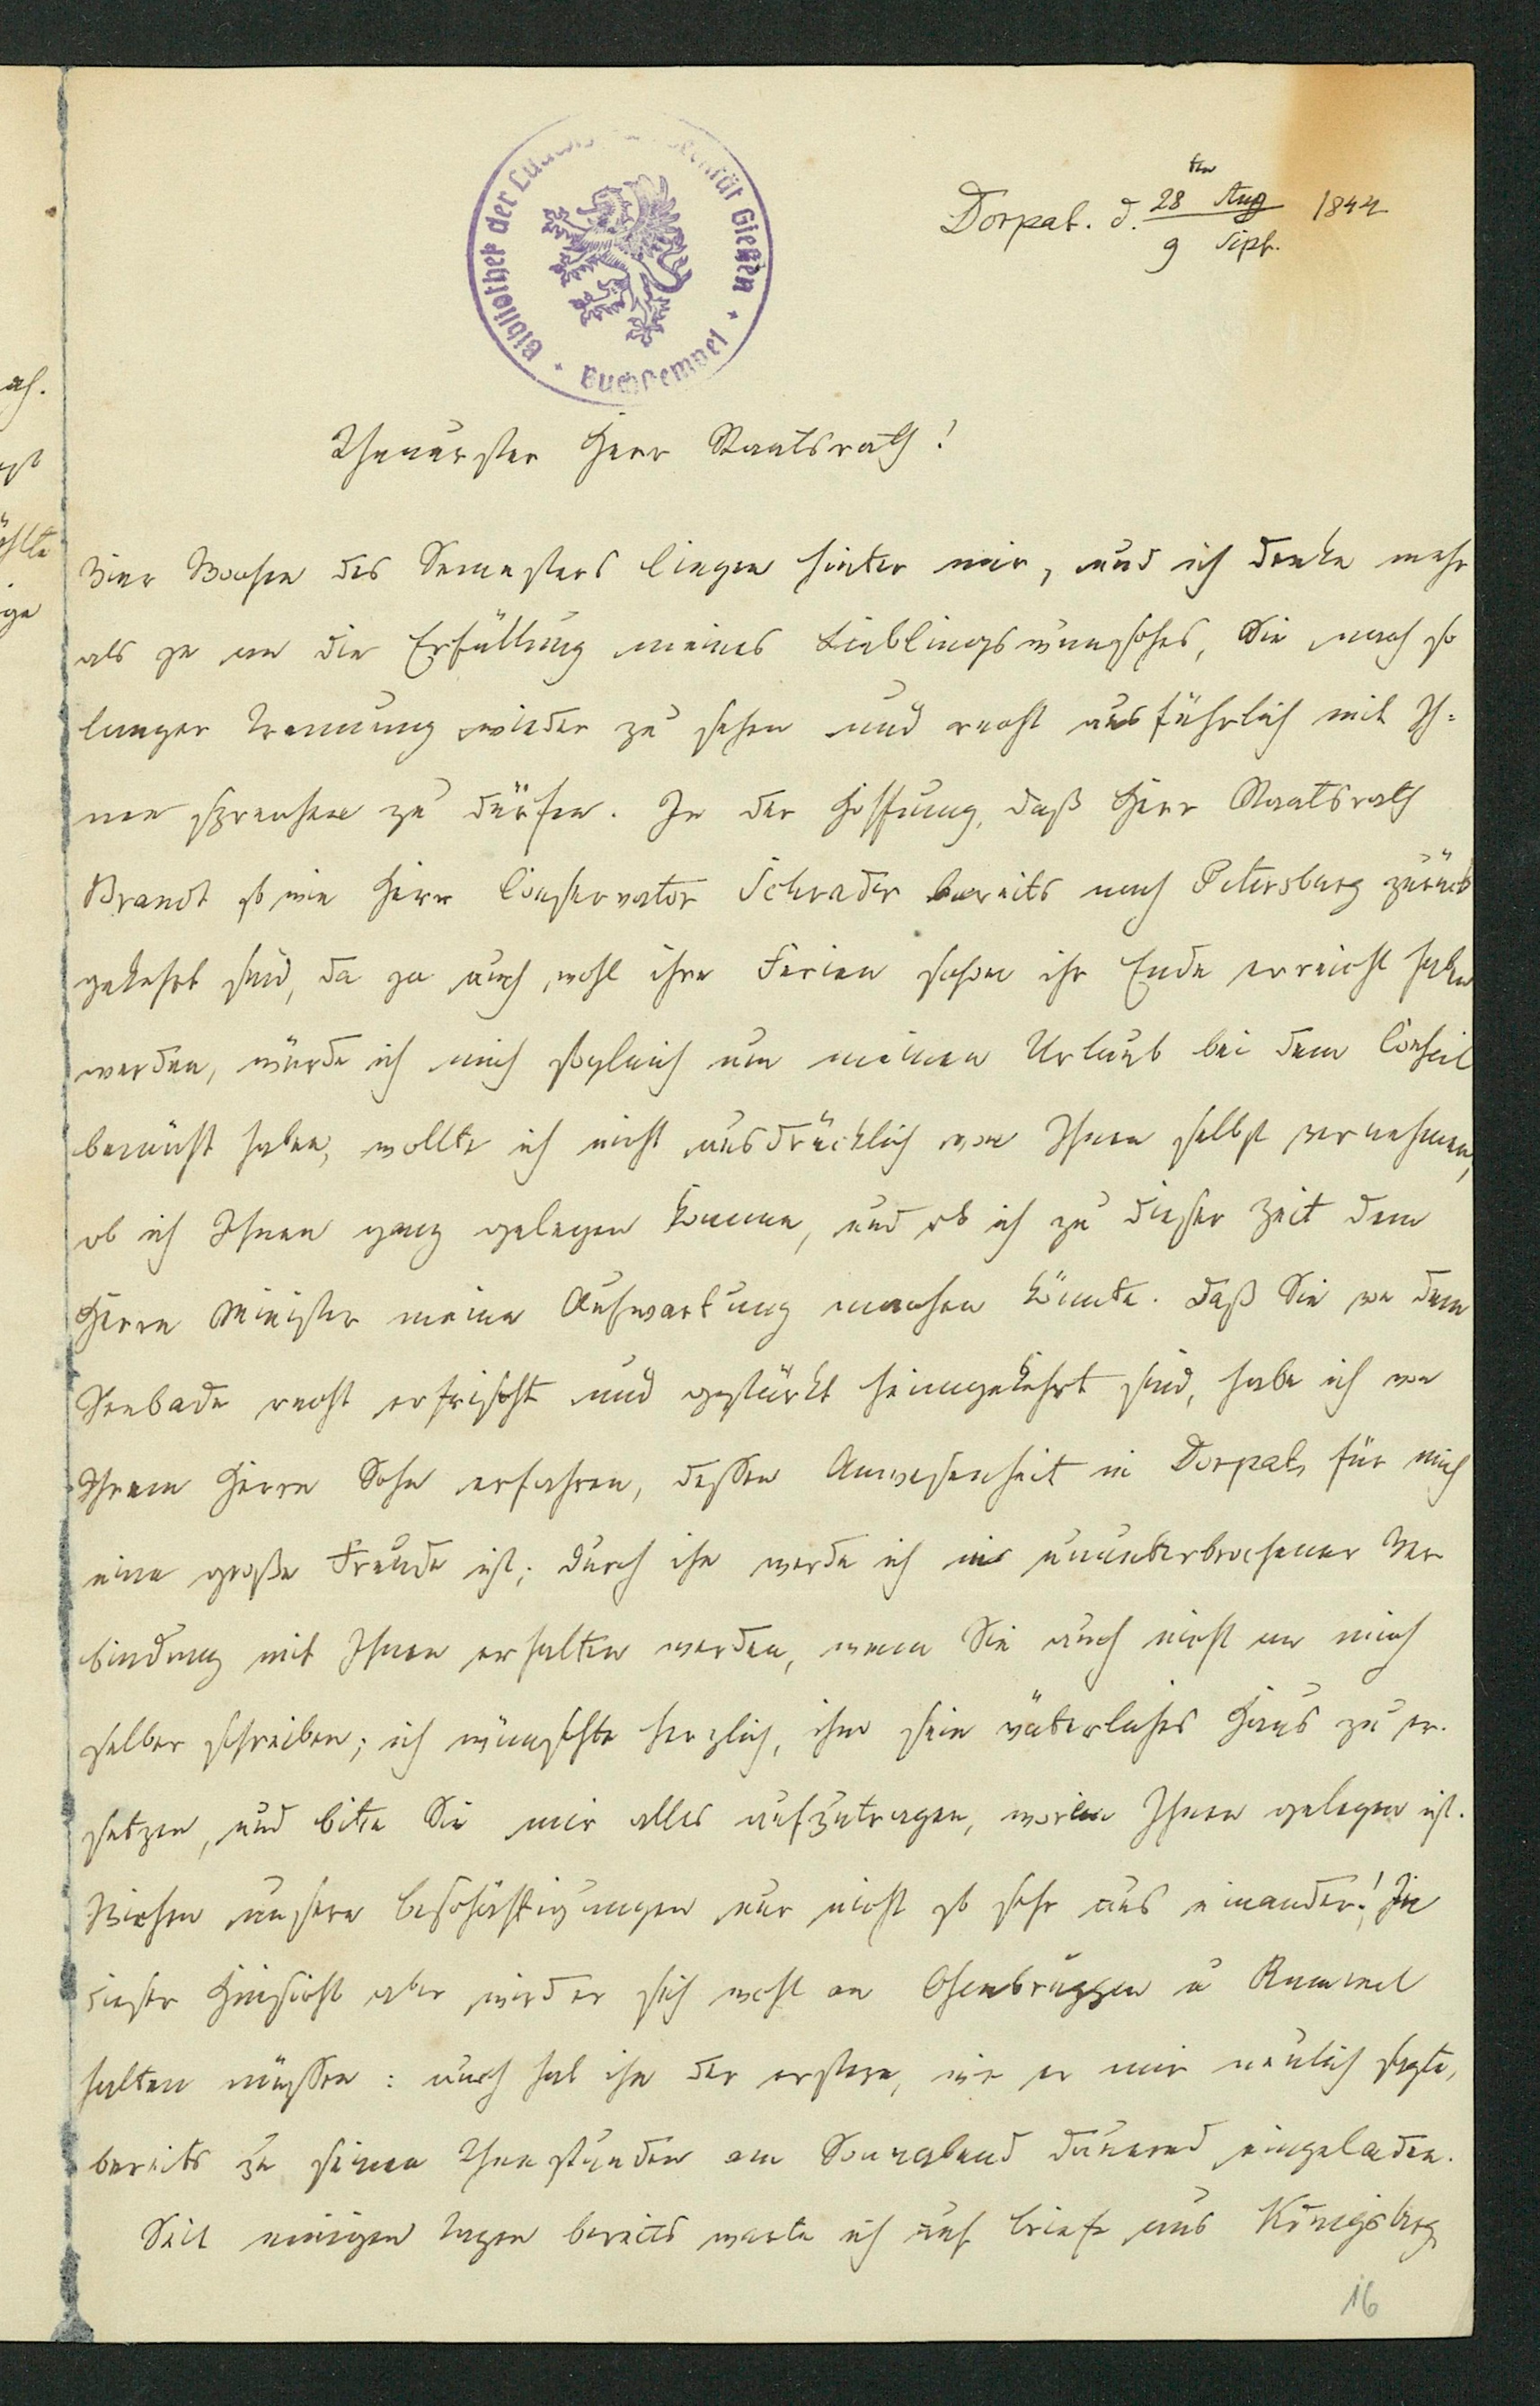 Bibliothek der Ludwigs-Universität Gießen
Buchstempel
Dorpat. d. 28ten Aug / 9 Sept. 1844
Theuerster Herr Staatsrath!
Vier Wochen des Semesters liegen hinter mir, und ich denke mehr
als je an die Erfüllung meines Lieblingswunsches, Sie nach so
langer Trennung wieder zu sehen und recht ausführlich mit Ih-
nen sprechen zu dürfen. In der Hoffnung, daß Herr Staatsrath
Brandt so wie Herr Conservator Schrader bereits nach Petersburg zurück
gekehrt sind, da ja auch wohl ihre Ferien schon ihr Ende erreicht haben
werden, würde ich mich sogleich um meinen Urlaub bei dem Conseil
bemüht haben, wollte ich nicht ausdrücklich von Ihnen selbst vernehmen,
ob ich Ihnen ganz gelegen komme, und ob ich zu dieser Zeit dem
Herrn Minister meine Aufwartung machen könnte. Daß Sie von dem
Seebade recht erfrischt und gestärkt heimgekehrt sind, habe ich von
Ihrem Herrn Sohn erfahren, dessen Anwesenheit in Dorpat für mich
eine große Freude ist; durch ihn werde ich in ununterbrochener Ver
bindung mit Ihnen erhalten werden, wenn Sie auch nicht an mich
selber schreiben; ich wünschte herzlich, ihm sein väterliches Haus zu er-
setzen, und bitte Sie mir alles aufzutragen, worin Ihnen gelegen ist.
Wichen unsere Beschäftigungen nur nicht so sehr aus einander! In
dieser Hinsicht aber wird er sich wohl an Osenbrüggen u Rummel
halten müssen: auch hat ihn der erstere, wie er mir neulich sagte,
bereits zu seinen Theestunden am Sonnabend dauernd eingeladen.
Seit einigen Tagen bereits warte ich auf Briefe aus Königsberg
16